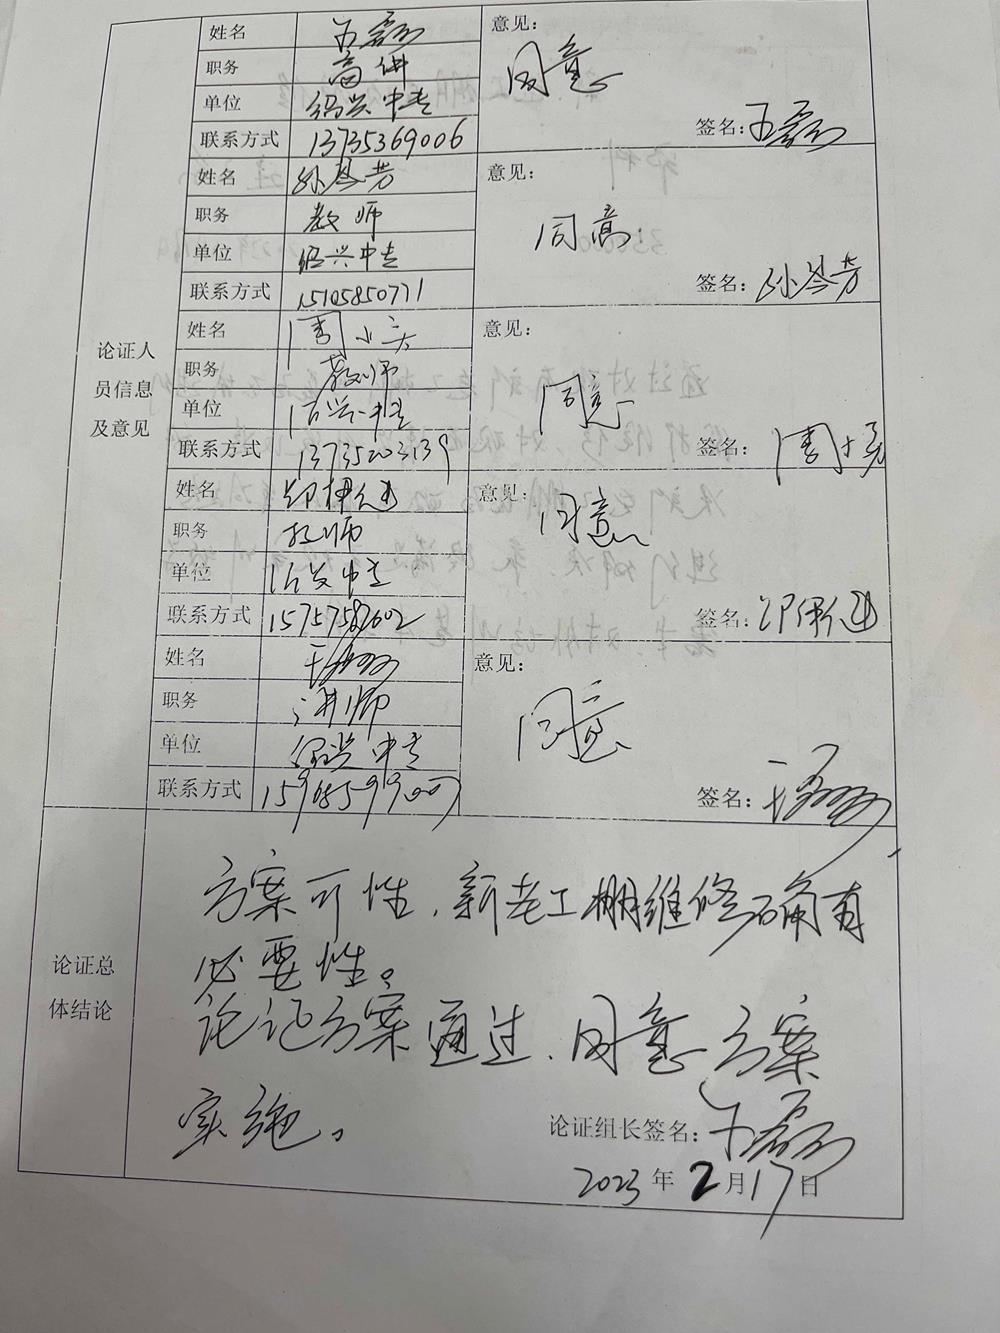 姓名 王磊
意见：
职务 高讲
同意
单位 绍兴中专
签名：王磊
联系方式 13735369006
姓名 孙琴芳
意见：
职务 教师
同意
单位 绍兴中专
签名：孙琴芳
联系方式 15105850771
论证人
员信息
及意见
姓名 周小
意见：
职务 教师
同意
单位 绍兴中专
签名：周小
联系方式 13735203139
姓名
意见：
同意
职务 教师
单位 绍兴中专
签名：
联系方式 15757582602
姓名
意见：
职务 讲师
同意
单位 绍兴中专
签名：
联系方式
论证总
体结论
方案可性，新老工棚维修确有
必要性。
论证方案通过，同意方案
实施。
论证组长签名：王磊
2023 年 2 月 17 日